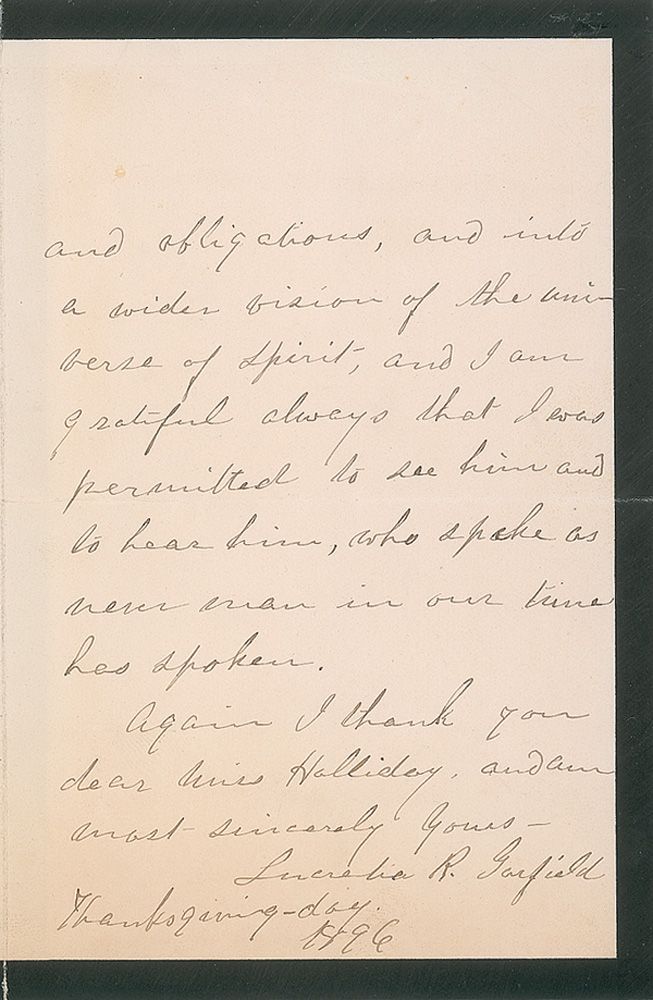 and obligations, and into
a wider vision of the uni-
verse of spirit, and I am
grateful always that I was
permitted to see him and
to hear him, who spoke as
never man in our time
has spoken.
Again I thank you
dear Miss Halliday, and am
most sincerely Yours -
Lucretia R. Garfield
Thanksgiving-day.
1896